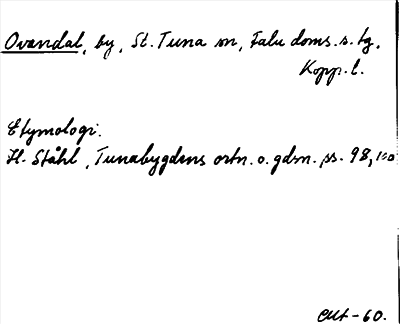 Ovandal, by, St. Tuna sn, Falu doms. s. tg,
Kopp. l.
Etymologi:
H. Ståhl, Tunabygdens ortn. o. gdsn. ss. 98, 100
-60.